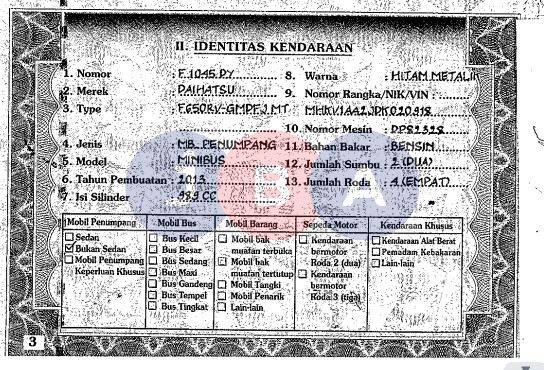 II. IDENTITAS KENDARAAN
1. Nomor : F 1045 DY
2. Merek : DAIHATSU
3. Type : F650RV-GMDFJ MT
4. Jenis : MB. PENUMPANG
5. Model : MINIBUS
6. Tahun Pembuatan : 2013
7. Isi Silinder : 989 CC
8. Warna : HITAM METALIK
9. Nomor Rangka/NIK/VIN :
MHKV1AA2JDK020918
10. Nomor Mesin : DP82328
11. Bahan Bakar : BENSIN
12. Jumlah Sumbu : 2 (DUA)
13. Jumlah Roda : 4 (EMPAT)
IBA
Mobil Penumpang
Sedan
Bukan Sedan
Mobil Penumpang
Keperluan Khusus
Mobil Bus
Bus Kecil
Bus Besar
Bus Sedang
Bus Maxi
Bus Gandeng
Bus Tempel
Bus Tingkat
Mobil Barang
Mobil bak
muatan terbuka
Mobil bak
muatan tertutup
Mobil Tangki
Mobil Penarik
Lain-lain
Sepeda Motor
Kendaraan
bermotor
Roda 2 (dua)
Kendaraan
bermotor
Roda 3 (tiga)
Kendaraan Khusus
Kendaraan Alat Berat
Pemadam Kebakaran
Lain-lain
3